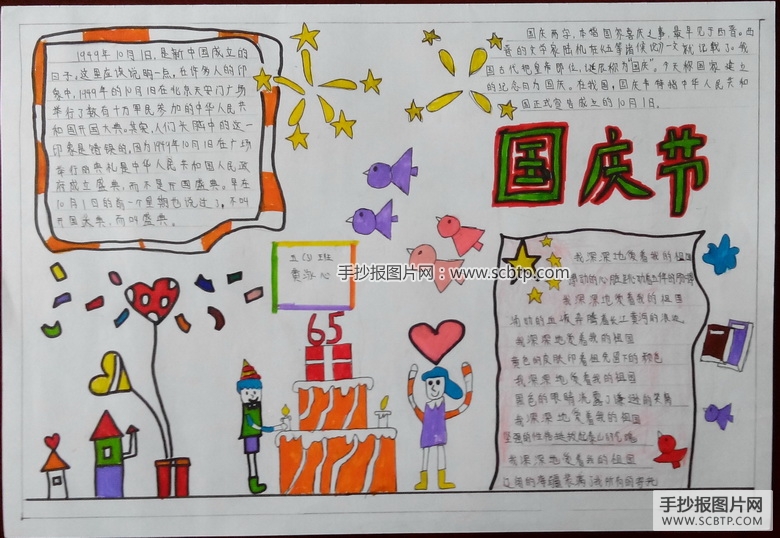 1949年10月1日,是新中国成立的
日子。这里应该说明一点,在许多人的印
象中,1949年的10月1日在北京天安门广场
举行了数有十万军民参加的中华人民共
和国开国大典。其实,人们头脑中的这一
印象是错误的。因为1949年10月1日在广场
举行的典礼是中华人民共和国人民政
府成立盛典,而不是开国盛典。早在
10月1日的前一个星期也说过了。不叫
开国大典,而叫盛典。
国庆两字,本指国家喜庆之事,最早见于西晋。西
晋的文学家陆机在《五等诸侯论》一文就记载了。我
国古代把皇帝即位,诞辰称为"国庆"。今天称国家建立
的纪念日为国庆。在我国,国庆节特指中华人民共和
国正式宣告成立的10月1日。
国庆节
五(4)班
黄泳心
手抄报图片网:www.scbtp.com
65
我深深地爱着我的祖国
我深深地爱着我的祖国
我深深地爱着我的祖国
黄色的皮肤印着祖先留下的颜色
我深深地爱着我的祖国
黑色的眼睛
我深深地爱着我的祖国
我深深地爱着我的祖国
手抄报图片网
WWW.SCBTP.COM